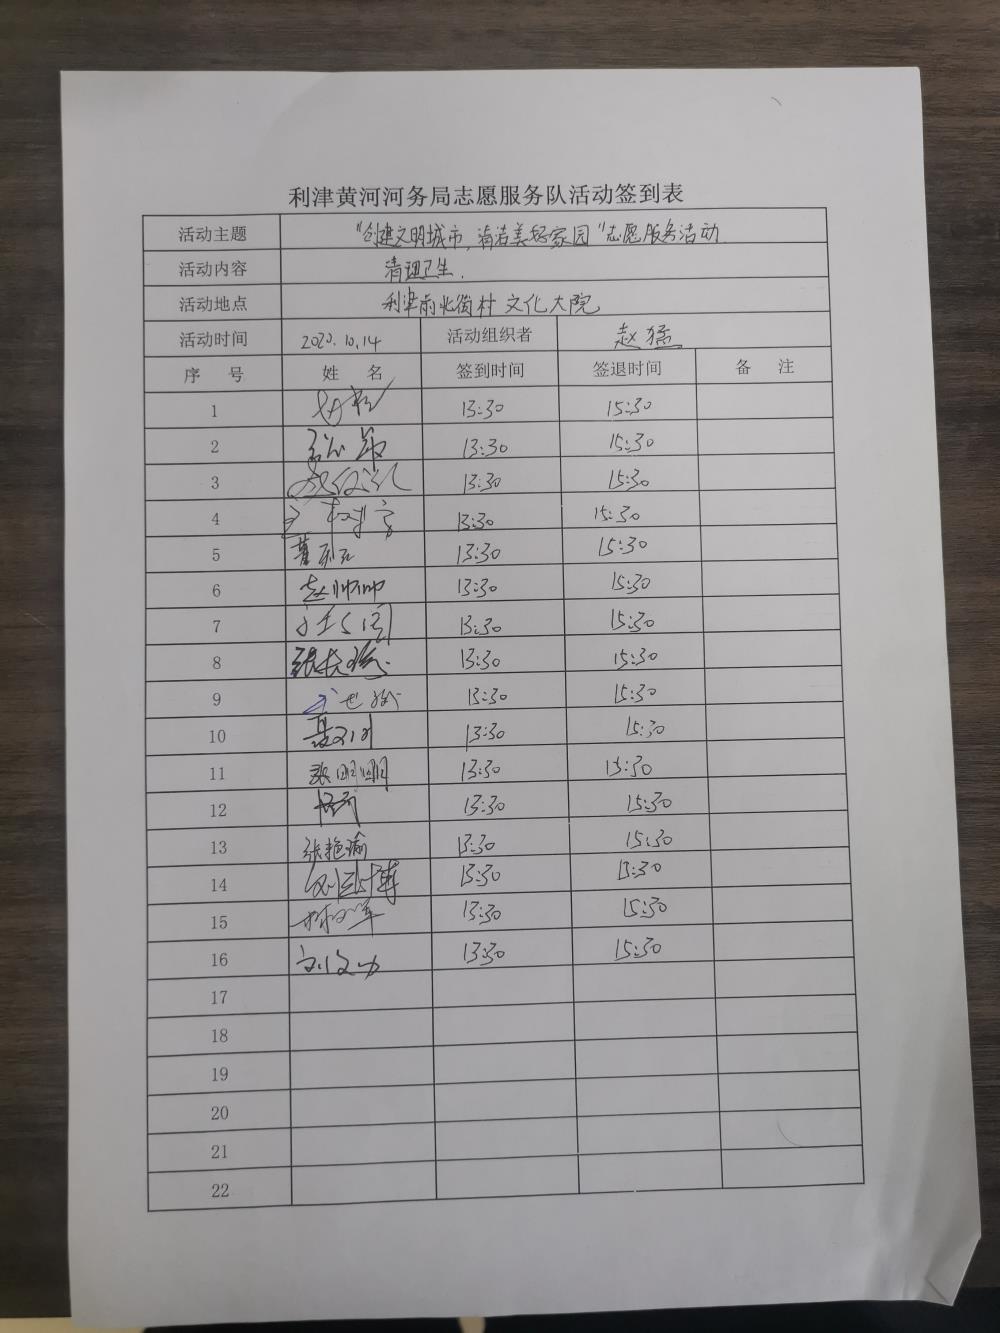 利津黄河河务局志愿服务队活动签到表
活动主题 "创建文明城市,清洁美好家园"志愿服务活动
活动内容 清理卫生.
活动地点 利津前北街村文化大院
活动时间 2020.10.14 活动组织者 赵猛
序 号 姓 名 签到时间 签退时间 备 注
1 13:30 15:30
2 13:30 15:30
3 13:30 15:30
4 13:30 15:30
5 13:30 15:30
6 赵帅帅 13:30 15:30
7 13:30 15:30
8 13:30 15:30
9 13:30 15:30
10 13:30 15:30
11 张明明 13:30 15:30
12 13:30 15:30
13 张艳瑜 13:30 15:30
14 13:30 15:30
15 13:30 15:30
16 13:30 15:30
17
18
19
20
21
22